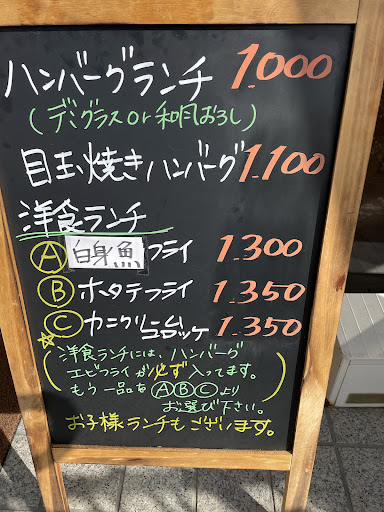 ハンバーグランチ 1.000
(デミグラスor和風おろし)
目玉焼きハンバーグ 1.100
洋食ランチ
Ⓐ白身魚フライ 1.300
Ⓑホタテフライ 1.350
☆Ⓒカニクリームコロッケ 1.350
(洋食ランチには、ハンバーグ
エビフライが必ず入ってます。
もう一品をⒶⒷⒸより
お選び下さい。)
お子様ランチもございます。